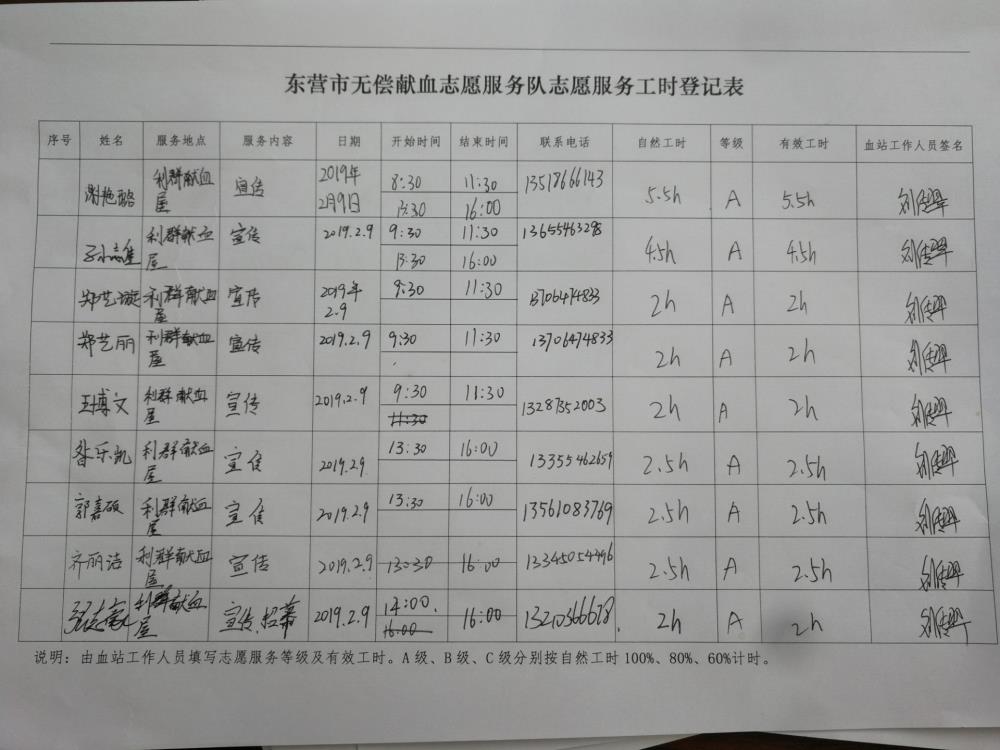 东营市无偿献血志愿服务队志愿服务工时登记表
序号 姓名 服务地点 服务内容 日期 开始时间 结束时间 联系电话 自然工时 等级 有效工时 血站工作人员签名
谢艳璐 利群献血屋 宣传 2019年2月9日 8:30 11:30 13518666143 5.5h A 5.5h
13:30 16:00
利群献血屋 宣传 2019.2.9 9:30 11:30 13655463298 4.5h A 4.5h
13:30 16:00
郑艺璇 利群献血屋 宣传 2019年2.9 9:30 11:30 13706474833 2h A 2h
郑艺丽 利群献血屋 宣传 2019.2.9 9:30 11:30 13706474833 2h A 2h
王博文 利群献血屋 宣传 2019.2.9 9:30 11:30 13287352003 2h A 2h
11:30
昝乐凯 利群献血屋 宣传 2019.2.9 13:30 16:00 13355462659 2.5h A 2.5h
郭嘉硕 利群献血屋 宣传 2019.2.9 13:30 16:00 13561083769 2.5h A 2.5h
齐丽洁 利群献血屋 宣传 2019.2.9 13:30 16:00 13345054496 2.5h A 2.5h
利群献血屋 宣传、招募 2019.2.9 14:00 16:00 13210366678 2h A 2h
16:00
说明：由血站工作人员填写志愿服务等级及有效工时。A级、B级、C级分别按自然工时100%、80%、60%计时。